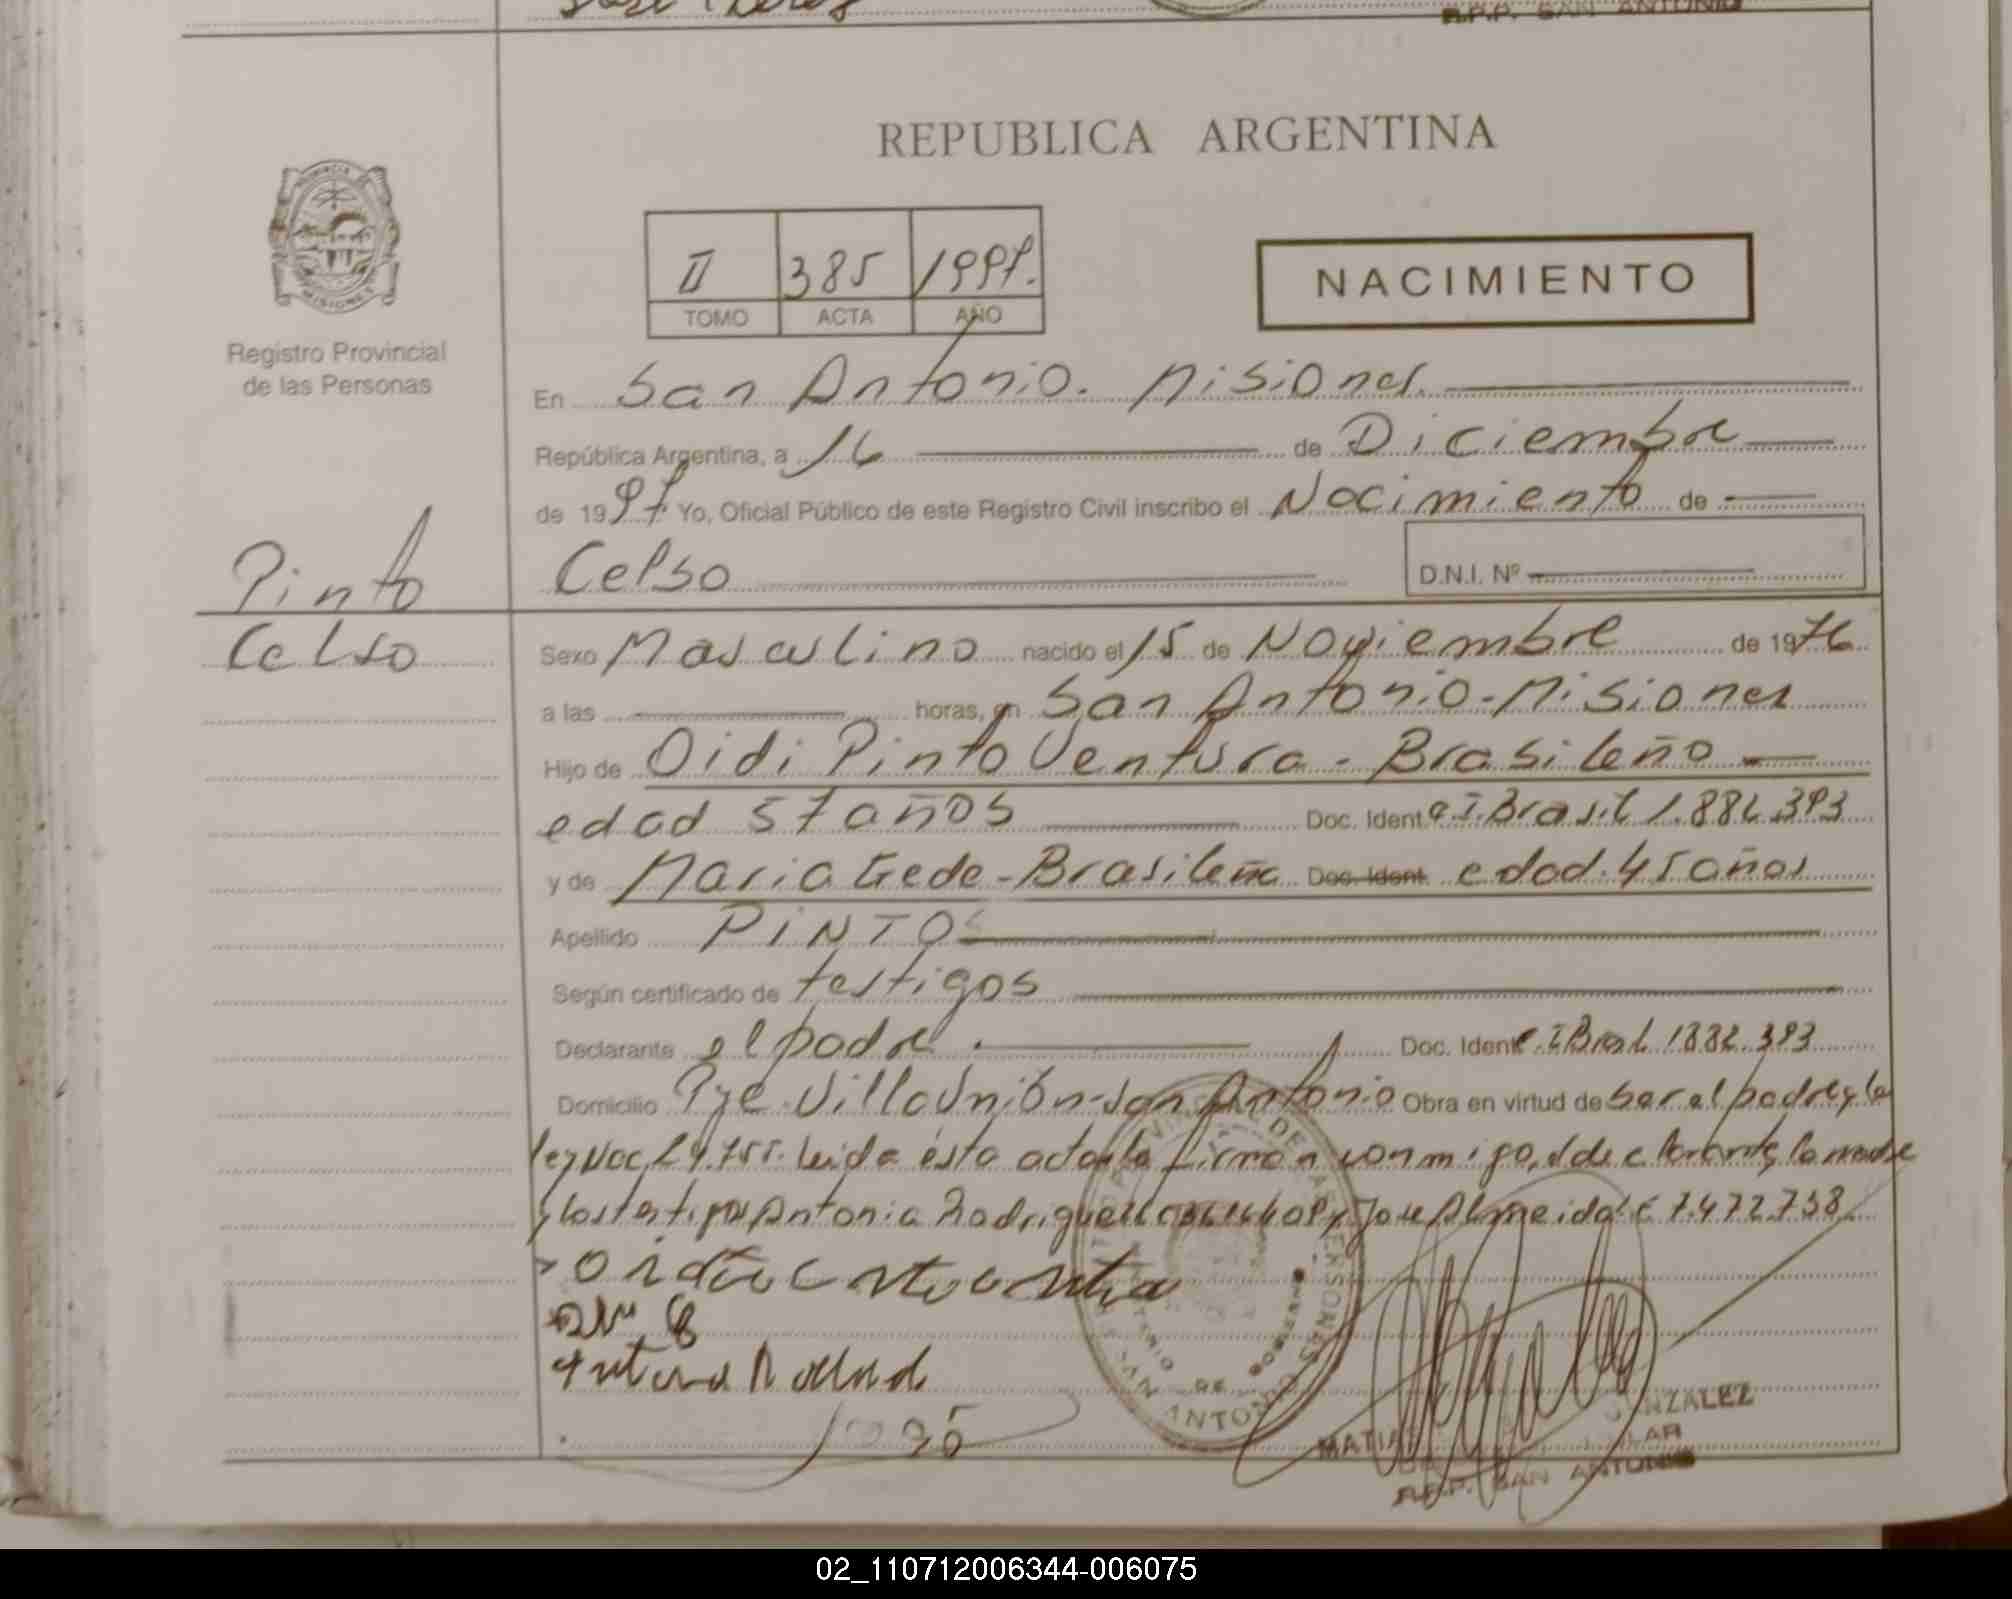 R.P.P. SAN ANTONIO
REPUBLICA ARGENTINA
PROVINCIA DE
MISIONES
Registro Provincial
de las Personas
II 385 1997.
TOMO ACTA AÑO
NACIMIENTO
En San Antonio. Misiones.
República Argentina, a 16 de Diciembre
de 1997. Yo, Oficial Público de este Registro Civil inscribo el Nacimiento de
Pinto
Celso
D.N.I. Nº
Celso
Sexo Masculino nacido el 15 de Noviembre de 1976
a las horas, en San Antonio-Misiones
Hijo de Oidi Pinto Ventura - Brasileño
edad 57 años Doc. Ident. C.I. Brasil 1.882.393
y de Maria Gede - Brasileña Doc. Ident. edad. 45 años
Apellido PINTO
Según certificado de testigos
Declarante el padre. Doc. Ident. 1882.393
Domicilio Pje Villa Unión-San Antonio Obra en virtud de ser el padre y la
ley Nac. 24.755. leida ésta acta la firman conmigo, el declarante, la madre
y los testigos Antonia Rodriguez y Jose Almeida 7.472.738
MATIAS GONZALEZ
R.P.P. SAN ANTONIO
02_110712006344-006075